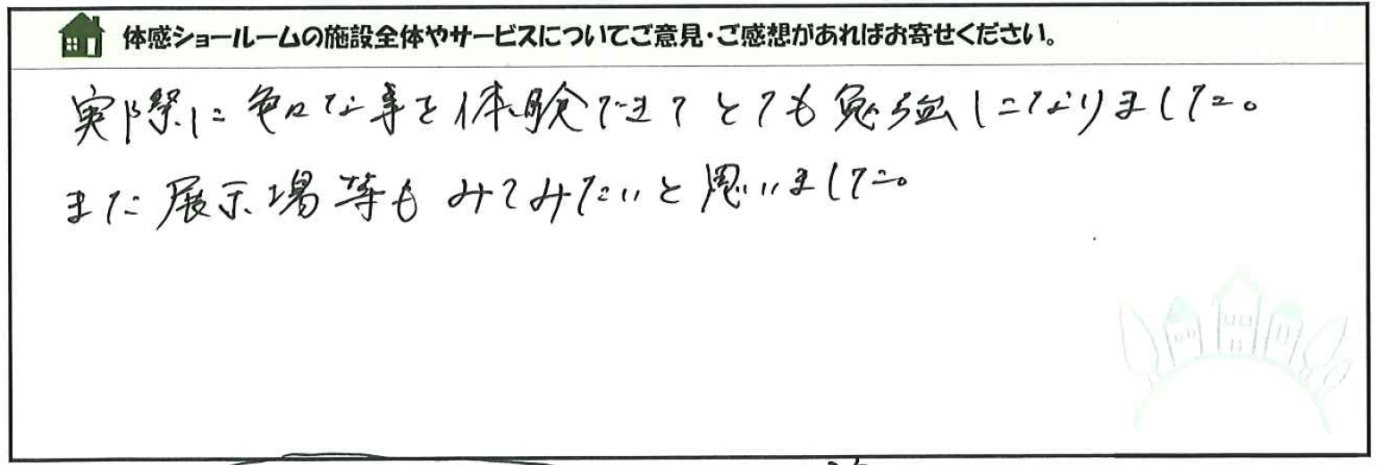 体感ショールームの施設全体やサービスについてご意見・ご感想があればお寄せください。
実際に色々な事を体験できてとても勉強になりました。
また展示場等もみてみたいと思いました。